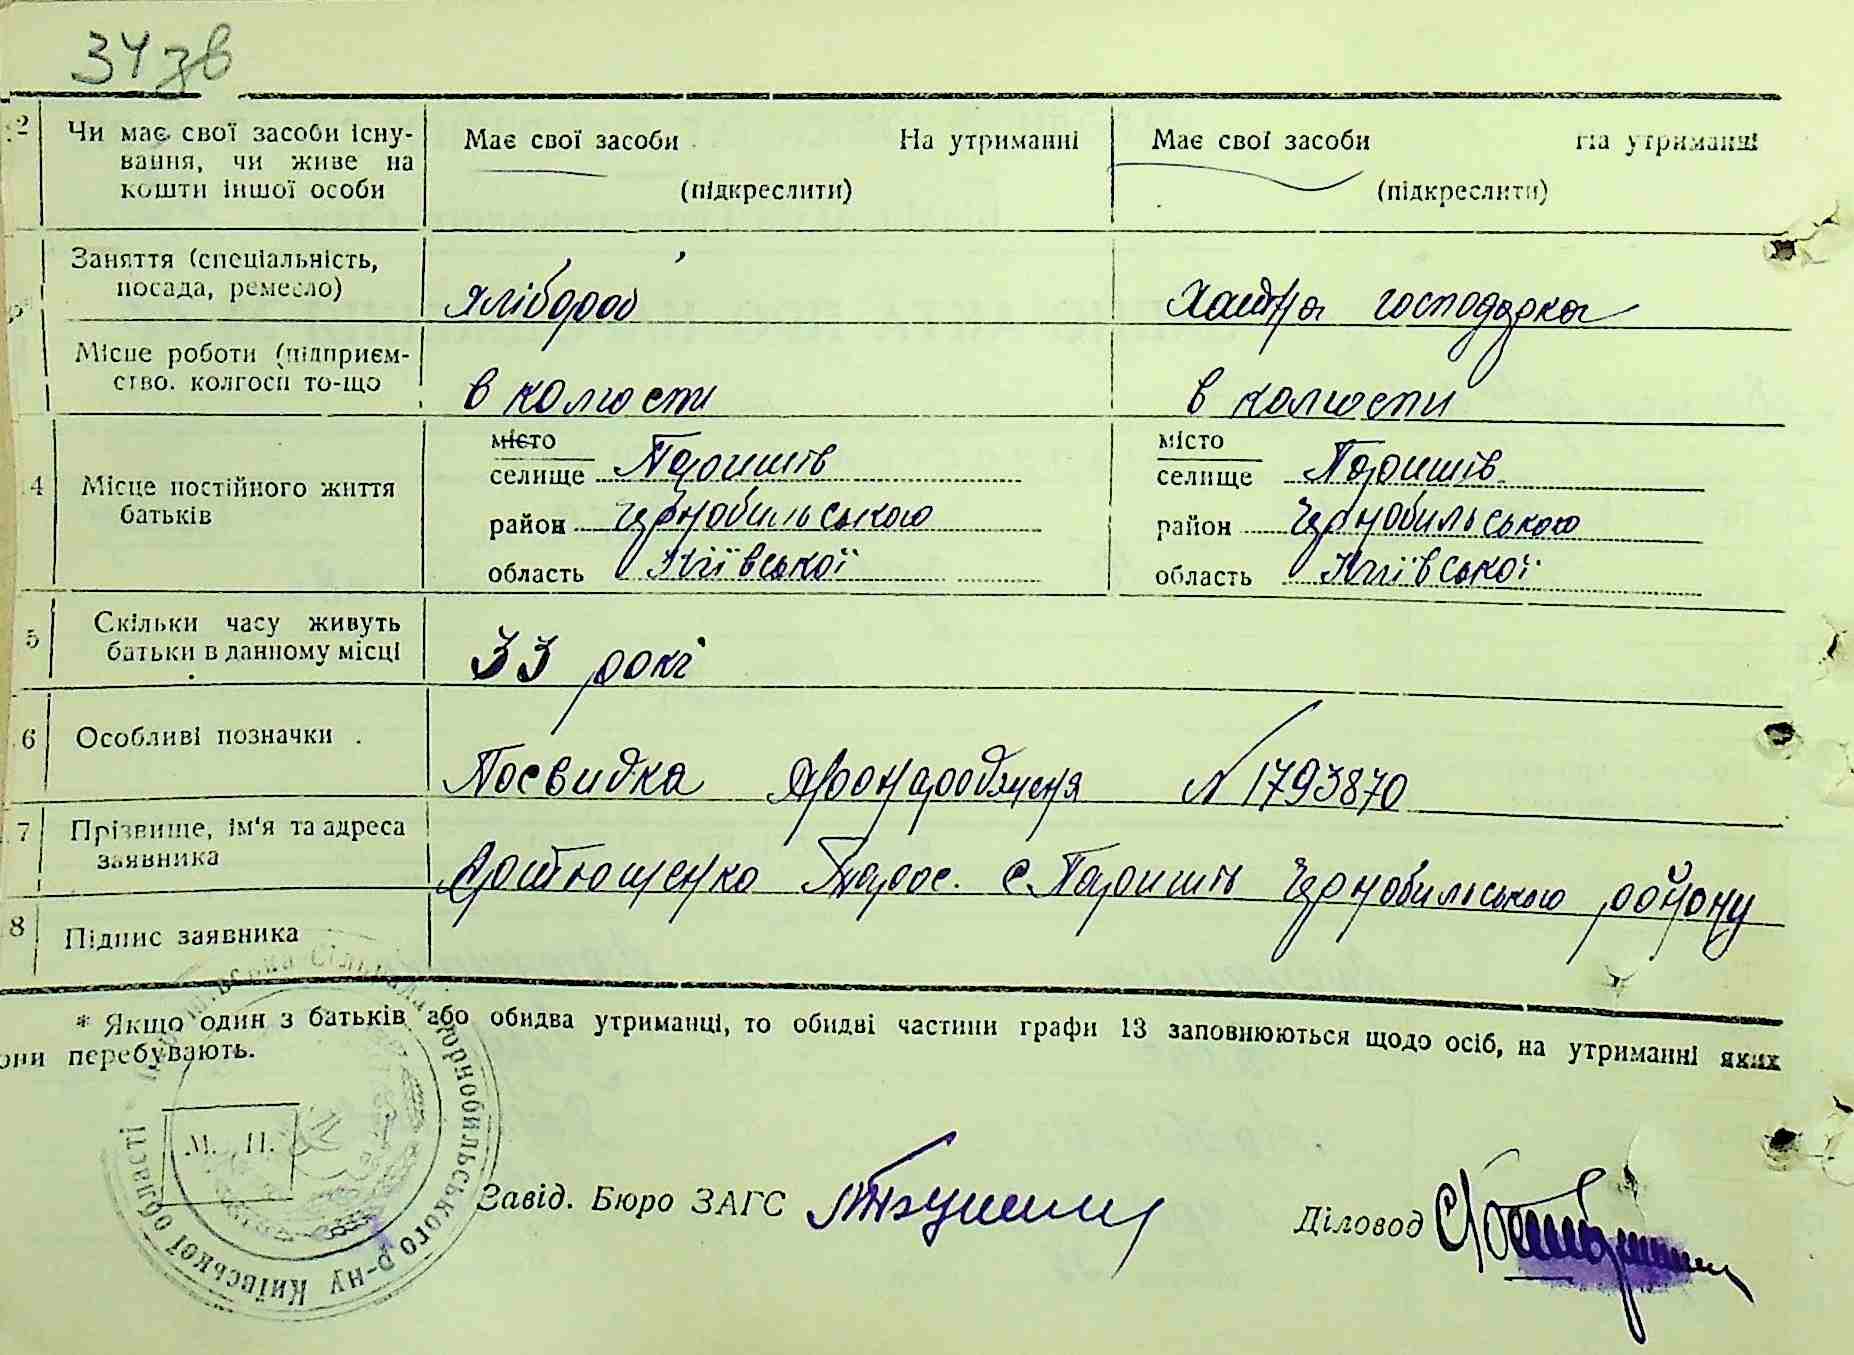 34 зв
2 Чи має свої засоби існування, чи живе на кошти іншої особи
Має свої засоби На утриманні Має свої засоби На утриманні
(підкреслити) (підкреслити)
Заняття (спеціальність,
посада, ремесло) хлібороб хатня господарка
Місце роботи (підприєм-
ство. колгосп то-що в колгоспи в колгоспи
місто місто
4 Місце постійного життя
батьків
селище Паришів селище Паришів
район Чорнобильського район Чорнобильського
область Київської область Київської
5 Скільки часу живуть
батьки в данному місці 33 рокі
6 Особливі позначки
Посвидка пронародженя N 1793870
7 Прізвище, ім'я та адреса
заявника
Артюшенко Тарас. с. Паришів Чорнобильського району
8 Підпис заявника
* Якщо один з батьків або обидва утриманці, то обидві частини графи 13 заповнюються щодо осіб, на утриманні яких
они перебувають.
М. П.
Сільська Чорнобильського р-ну Київської області
Завід. Бюро ЗАГС
Діловод